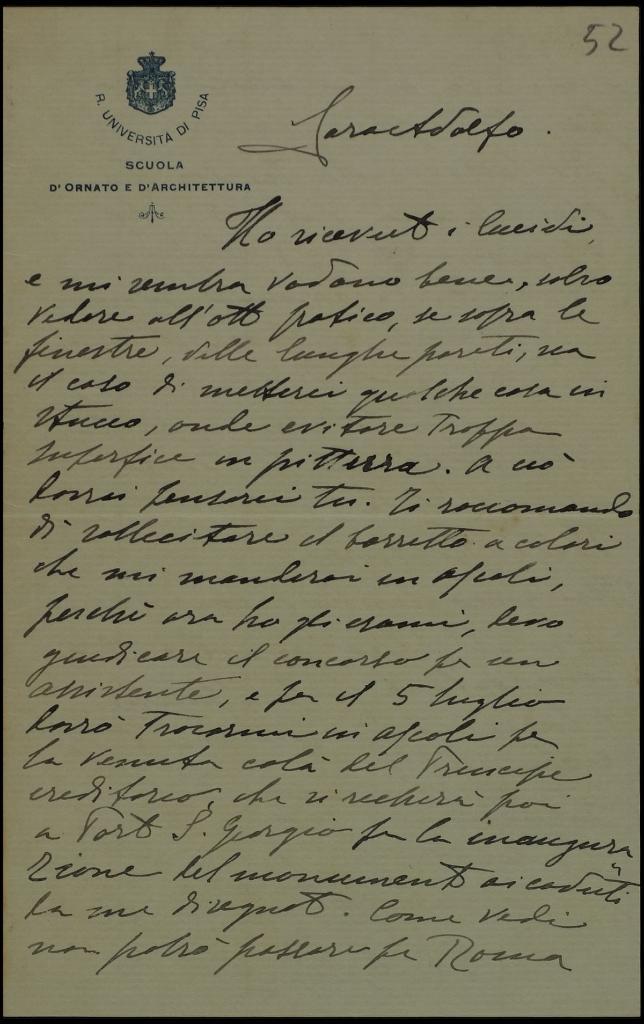 52
R. UNIVERSITÀ DI PISA
SCUOLA
D'ORNATO E D'ARCHITETTURA
Caro Adolfo.
Ho ricevuto i lucidi,
e mi sembra vadano bene, salvo
vedere all'atto pratico, se sopra le
finestre, delle lunghe pareti, sia
il caso di metterci qualche cosa in
stucco, onde evitare troppa
superfice in pittura. A ciò
dovrai pensarci tu. Ti raccomando
di sollecitare il bozzetto a colori
che mi manderai in Ascoli,
perchè ora ho gli esami, devo
giudicare il concorso per un
assistente, e per il 5 luglio
dovrò trovarmi in Ascoli per
la venuta colà del Principe
ereditario, che si recherà poi
a Porto S. Giorgio per la inaugura
zione del monumento ai caduti
da me disegnato. Come vedi
non potrò passare per Roma